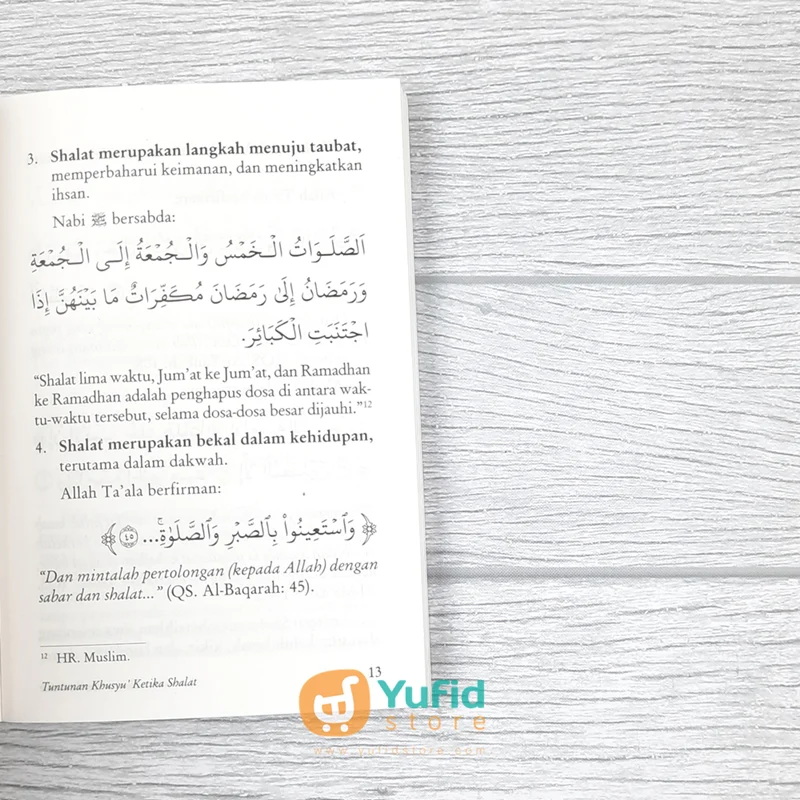 3. Shalat merupakan langkah menuju taubat,
memperbaharui keimanan, dan meningkatkan
ihsan.
Nabi ﷺ bersabda:
اَلصَّلَوَاتُ الْخَمْسُ وَالْجُمْعَةُ إِلَى الْجُمْعَةِ
وَرَمَضَانُ إِلَى رَمَضَانَ مُكَفِّرَاتٌ مَا بَيْنَهُنَّ إِذَا
اجْتَنَبَتِ الْكَبَائِرَ.
“Shalat lima waktu, Jum’at ke Jum’at, dan Ramadhan
ke Ramadhan adalah penghapus dosa di antara wak-
tu-waktu tersebut, selama dosa-dosa besar dijauhi.”12
4. Shalat merupakan bekal dalam kehidupan,
terutama dalam dakwah.
Allah Ta’ala berfirman:
﴿ وَٱسْتَعِينُوا۟ بِٱلصَّبْرِ وَٱلصَّلَوٰةِ ۚ ... ٤٥ ﴾
“Dan mintalah pertolongan (kepada Allah) dengan
sabar dan shalat...” (QS. Al-Baqarah: 45).
12 HR. Muslim.
13
Tuntunan Khusyu’ Ketika Shalat
Yufid
store
www.yufidstore.com